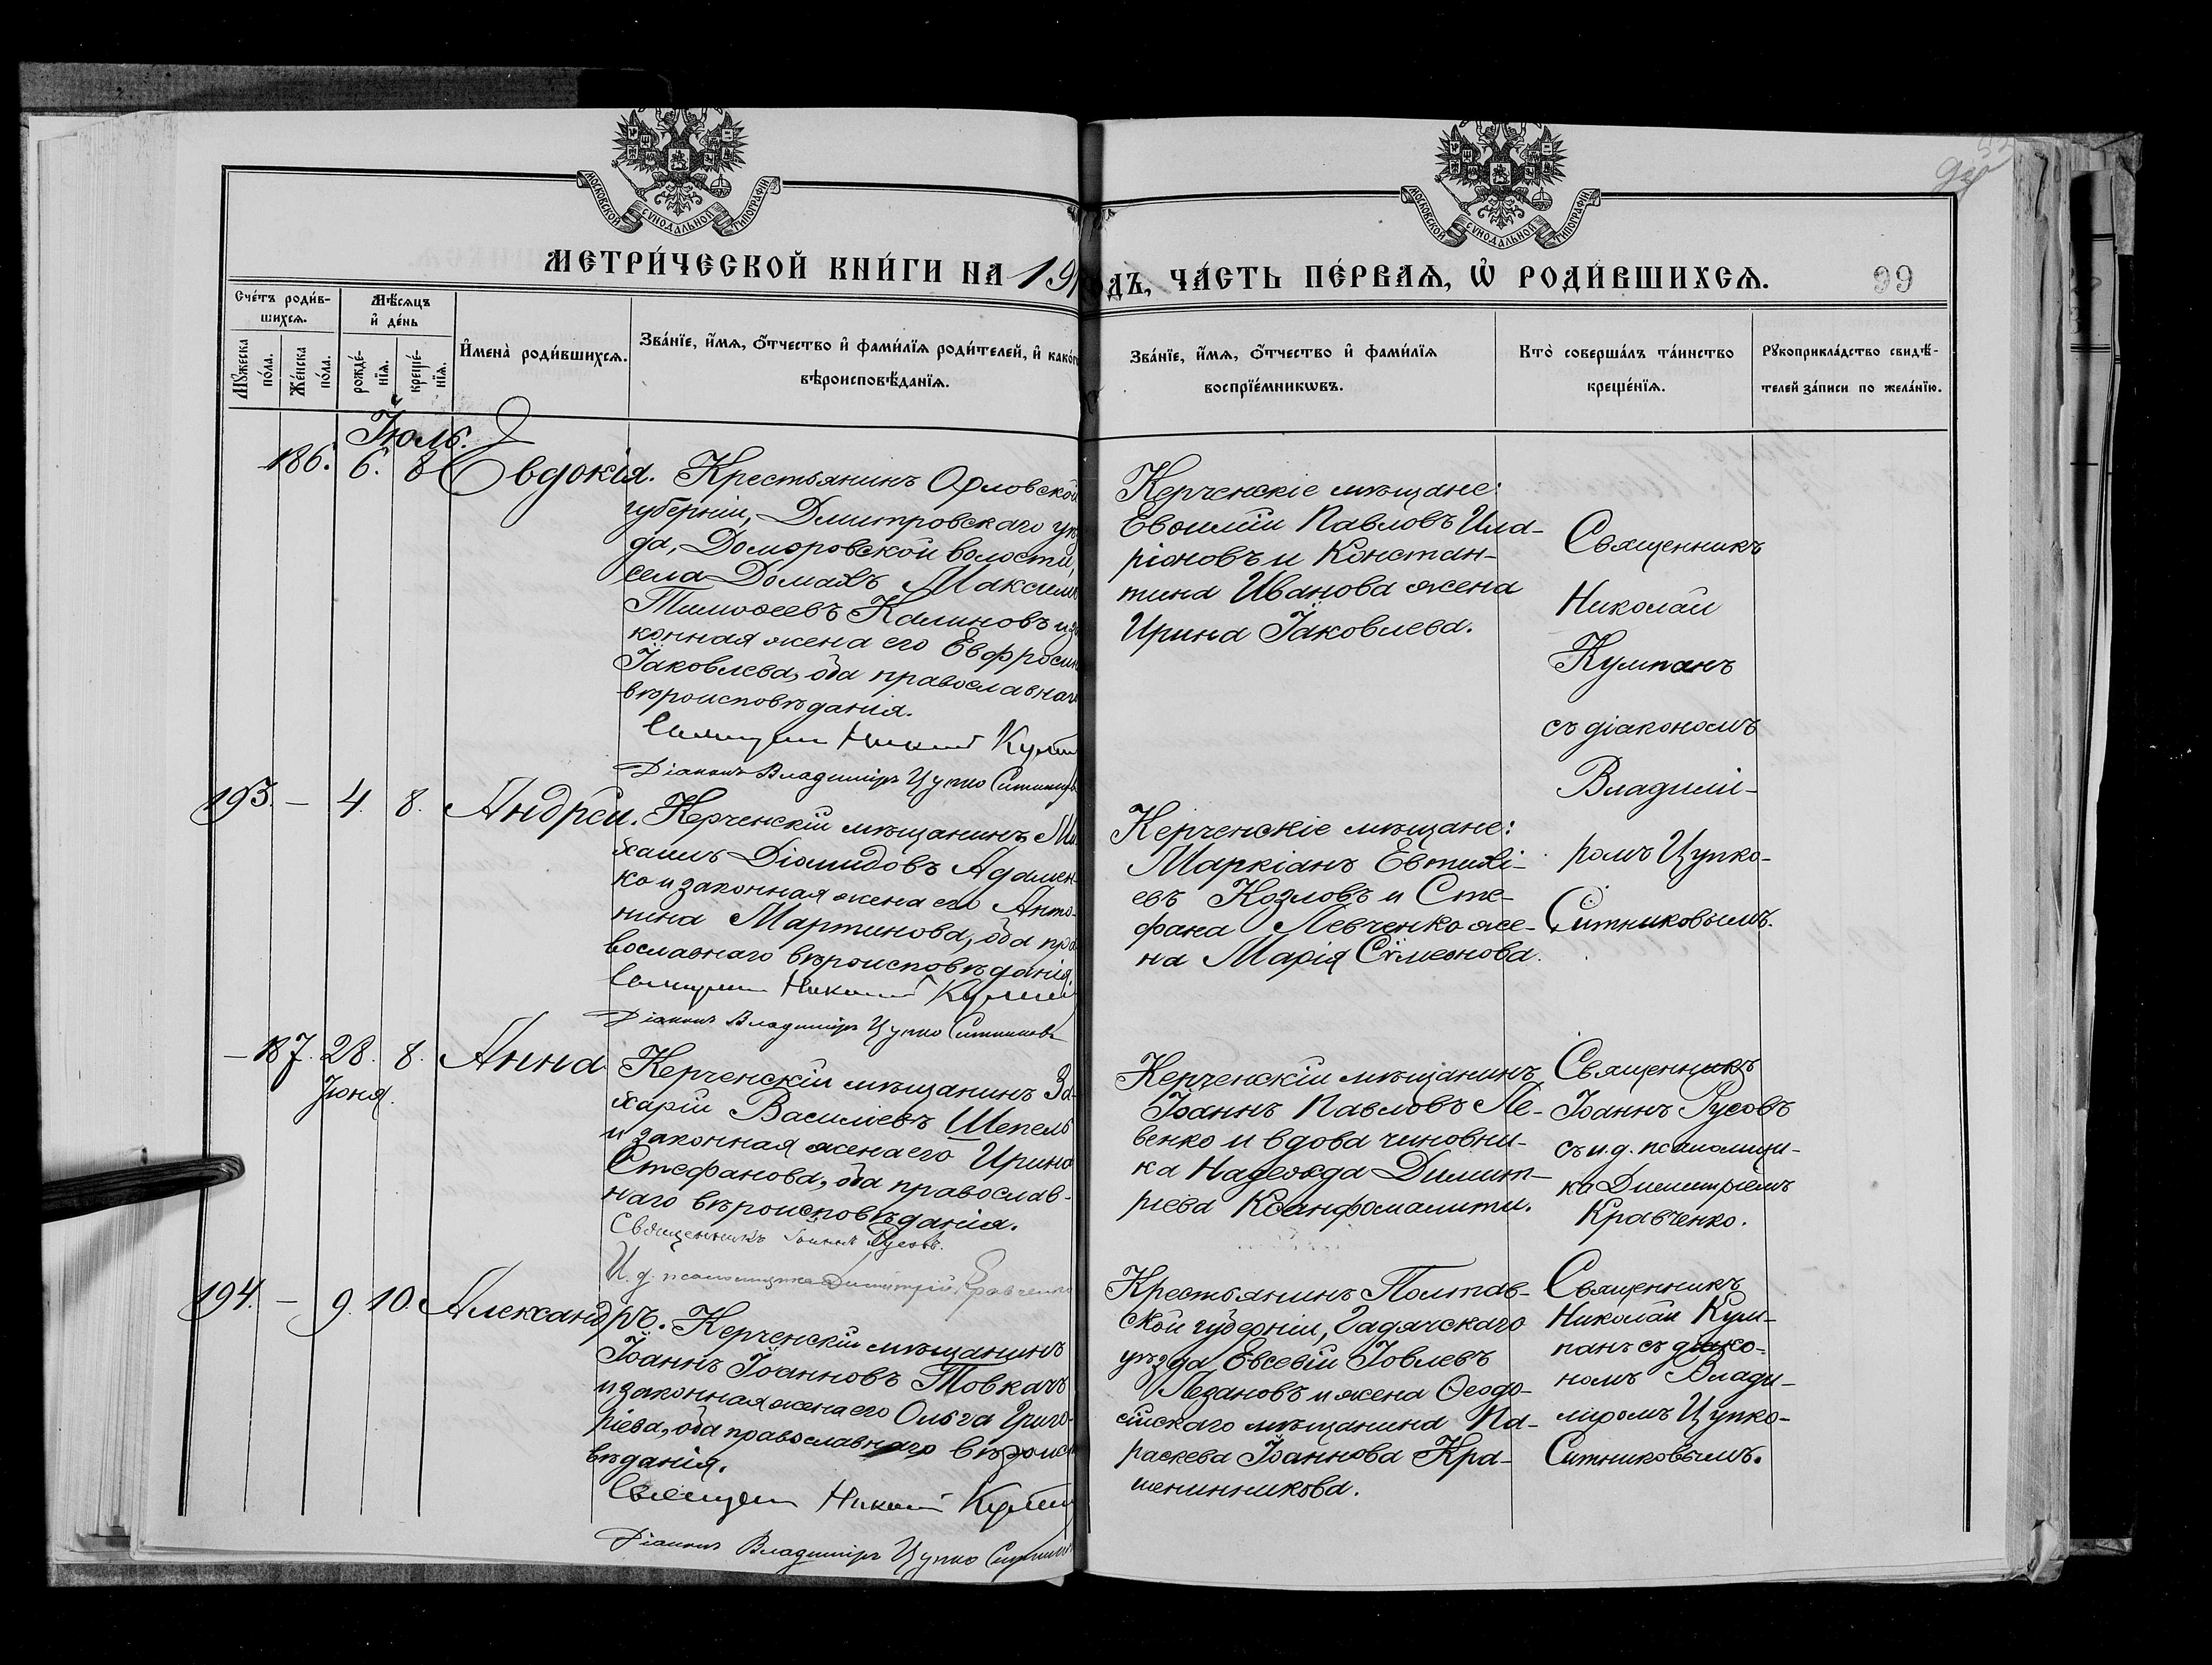 МОСКОВСКОЙ СѴНОДАЛЬНОЙ ТИПОГРАФІИ
МОСКОВСКОЙ СѴНОДАЛЬНОЙ ТИПОГРАФІИ
МЕТРИ́ЧЕСКОЙ КНИ́ГИ НА 191
ОДЪ, ЧА́СТЬ ПЕ́РВАѦ, Ѡ҆ РОДИ́ВШИХСѦ.
99
Сче́тъ роди́в-
шихсѧ.
Мꙋ́жеска
по́ла.
Же́нска
по́ла.
Мѣ́сѧцъ
и҆ де́нь
рожде́-
нїѧ.
креще́-
нїѧ.
И҆мена̀ роди́вшихсѧ.
Зва́нїе, и҆́мѧ, ѻ҆́тчество и҆ фами́лїѧ роди́телей, и҆ како́г
вѣроисповѣ́данїѧ.
Зва́нїе, и҆́мѧ, ѻ҆́тчество и҆ фами́лїѧ
воспрїе́мникѡвъ.
Кто̀ соверша́лъ та́инство
креще́нїѧ.
Рꙋкоприкла́дство свидѣ́-
телей за́писи по жела́нїю.
Іюль.
186. 6. 8 Евдокія.
Крестьянинъ Орловской
губерніи, Дмитровскаго уѣз
да, Домаровской волости,
села Домахъ Максимъ
Тимоѳеевъ Калиновъ и за
конная жена его Евфросин
Іаковлева, оба православнаго
вѣроисповѣданія.
Священ Николай Кумпан
Діаконъ Владиміръ Цупко Ситников
Керченскіе мѣщане:
Евѳимій Павловъ Ила-
ріоновъ и Констан-
тина Иванова жена
Ирина Іаковлева.
Священникъ
Николай
Кумпанъ
съ діакономъ
Владимі-
ромъ Цупко-
Ситниковымъ.
193. — 4. 8. Андрей.
Керченскій мѣщанинъ Ми
хаилъ Діомидовъ Адамен-
ко и законная жена его Анто-
нина Мартинова, оба пра
вославнаго вѣроисповѣданія
Священ Николай Кумпан
Діаконъ Владиміръ Цупко Ситниковъ
Керченскіе мѣщане:
Маркіанъ Евтихі-
евъ Козловъ и Сте-
фана Левченко же-
на Марія Сѵмеонова.
— 187. 28. 8. Анна
Іюня.
Керченскій мѣщанинъ За-
харій Василіевъ Шепель
и законная жена его Ирина
Стефанова, оба православ-
наго вѣроисповѣданія.
Священникъ Іоаннъ Русовъ.
И. д. псаломщика Димитрій Кравченко
Керченскій мѣщанинъ
Іоаннъ Павловъ Ле-
венко и вдова чиновни-
ка Надежда Димит-
ріева Ксанфомалити.
Священникъ
Іоаннъ Русовъ
съ и.д. псаломщи-
ка Димитріемъ
Кравченко.
194. — 9. 10. Александръ.
Керченскій мѣщанинъ
Іоаннъ Іоанновъ Товкачъ
и законная жена его Ольга Григо-
ріева, оба православнаго вѣроиспо
вѣданія.
Священ Николай Кумпан
Діаконъ Владиміръ Цупко Ситник
Крестьянинъ Полтав-
ской губерніи, Гадячскаго
уѣзда Евсевій Іовлевъ
Лезановъ и жена Ѳеодо-
сійскаго мѣщанина Па-
раскева Іоаннова Кра-
шенинникова.
Священникъ
Николай Кум-
панъ съ діако-
номъ Влади-
міромъ Цупко-
Ситниковымъ.